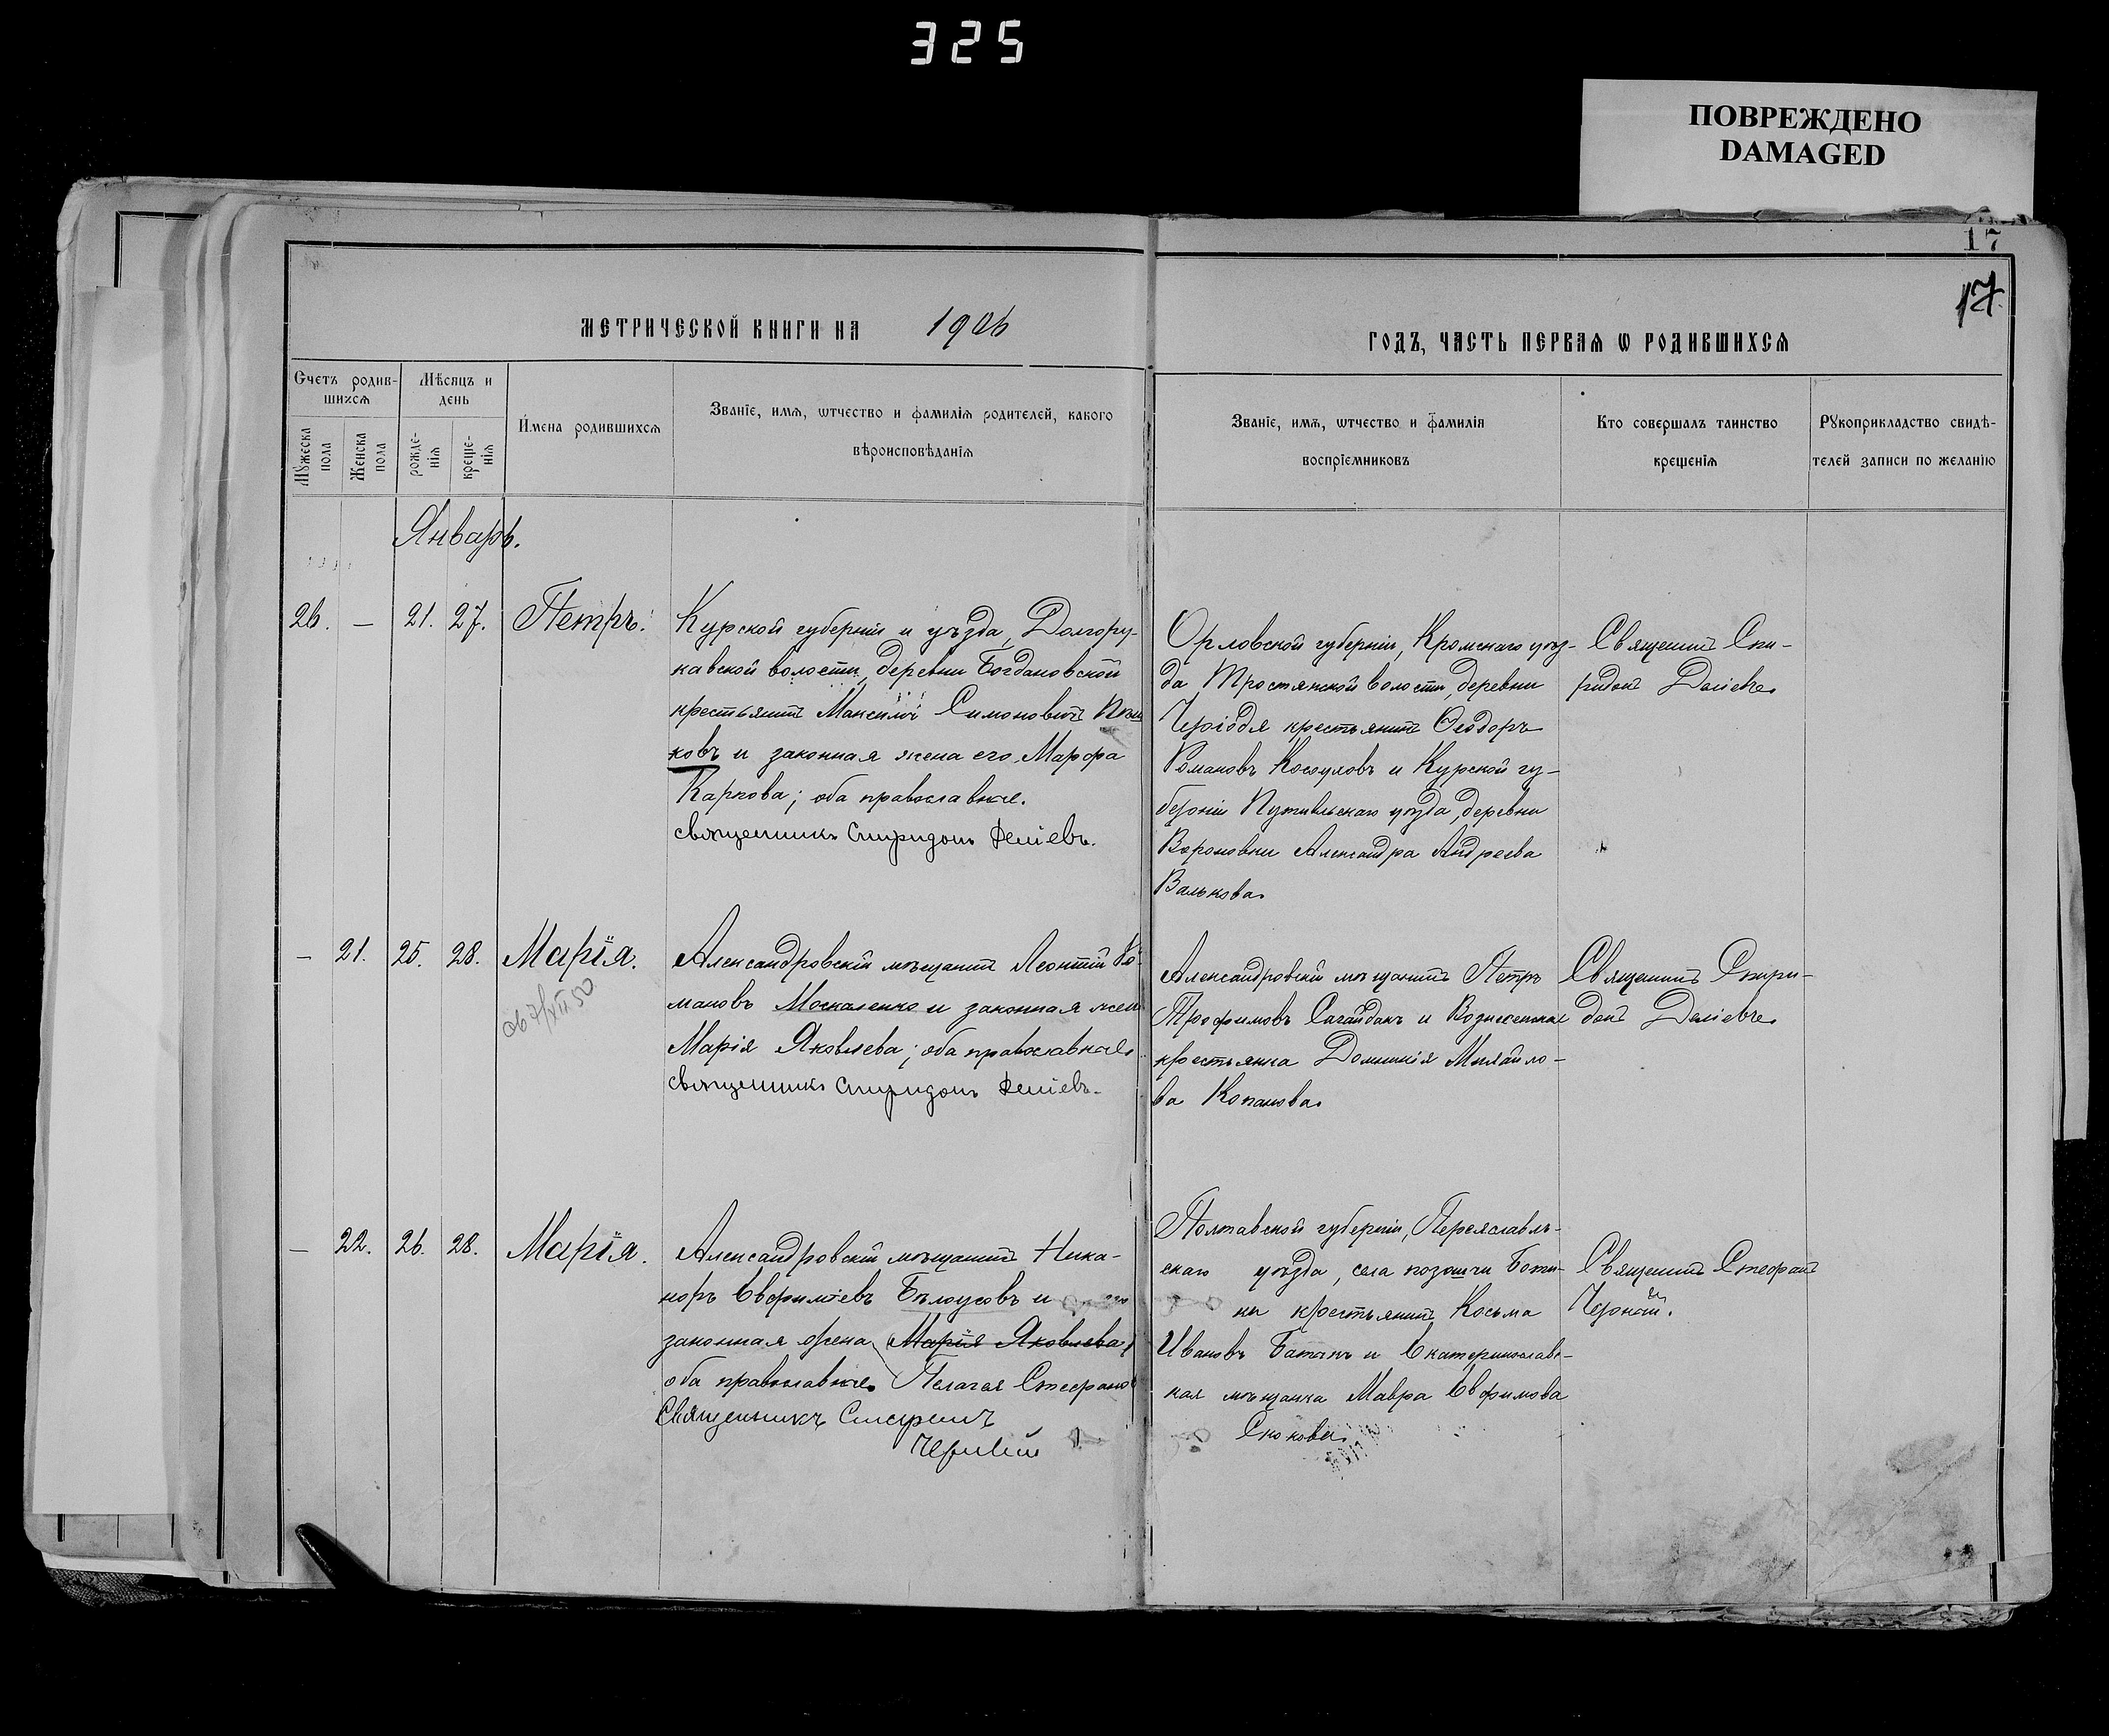 325
ПОВРЕЖДЕНО
DAMAGED
17
17.
МЕТРИЧЕСКОЙ КНИГИ НА 1906
ГОДЪ, ЧАСТЬ ПЕРВАЯ Ѡ РОДИВШИХСЯ
Счетъ родив-
шихся
Мѣсяцъ и
день
Мужеска
пола
Женска
пола
рожде-
нія
креще-
нія
Имена родившихся
Званіе, имя, ѡтчество и фамилія родителей, какого
вѣроисповѣданія
Званіе, имя, ѡтчество и фамилія
воспріемниковъ
Кто совершалъ таинство
крещенія
Рукоприкладство свидѣ-
телей записи по желанію
Январь.
26. — 21. 27. Петръ.
Курской губерніи и уѣзда, Долгору-
кавской волости, деревни Богдановской
крестьянинъ Максимъ Симоновичъ
ковъ и законная жена его Марфа
Карпова; оба православные.
священникъ Спиридонъ Деліевъ.
Орловской губерніи, Кромскаго уѣз-
да Тростянской волости, деревни
крестьянинъ Ѳеодоръ
Романовъ Косоуловъ и Курской гу-
берніи Путивльскаго уѣзда, деревни
Вороновки Александра Андреева
Валькова.
Священникъ Спи-
ридонъ Деліевъ.
— 21. 25. 28. Марія.
Александровскій мѣщанинъ Леонтій Ро-
мановъ Москаленко и законная жена
Марія Яковлева; оба православные.
священникъ Спиридонъ Деліевъ.
Александровскій мѣщанинъ Петръ
Трофимовъ Сагайдакъ и Вознесенская
крестьянка Домникія Михайло-
ва Копанова.
Священникъ Спири-
донъ Деліевъ.
— 22. 26. 28. Марія.
Александровскій мѣщанинъ Ника-
норъ Евфиміевъ Бѣлоусовъ и его
законная жена Марія Яковлева,
оба православные. Пелагея Стефанов
Священникъ Стефанъ
Черный
Полтавской губерніи, Переяславль-
скаго уѣзда, села
крестьянинъ Косьма
Ивановъ и Екатеринославс-
кая мѣщанка Мавра Евфимова
Скокова.
Священникъ Стефанъ
Черный.